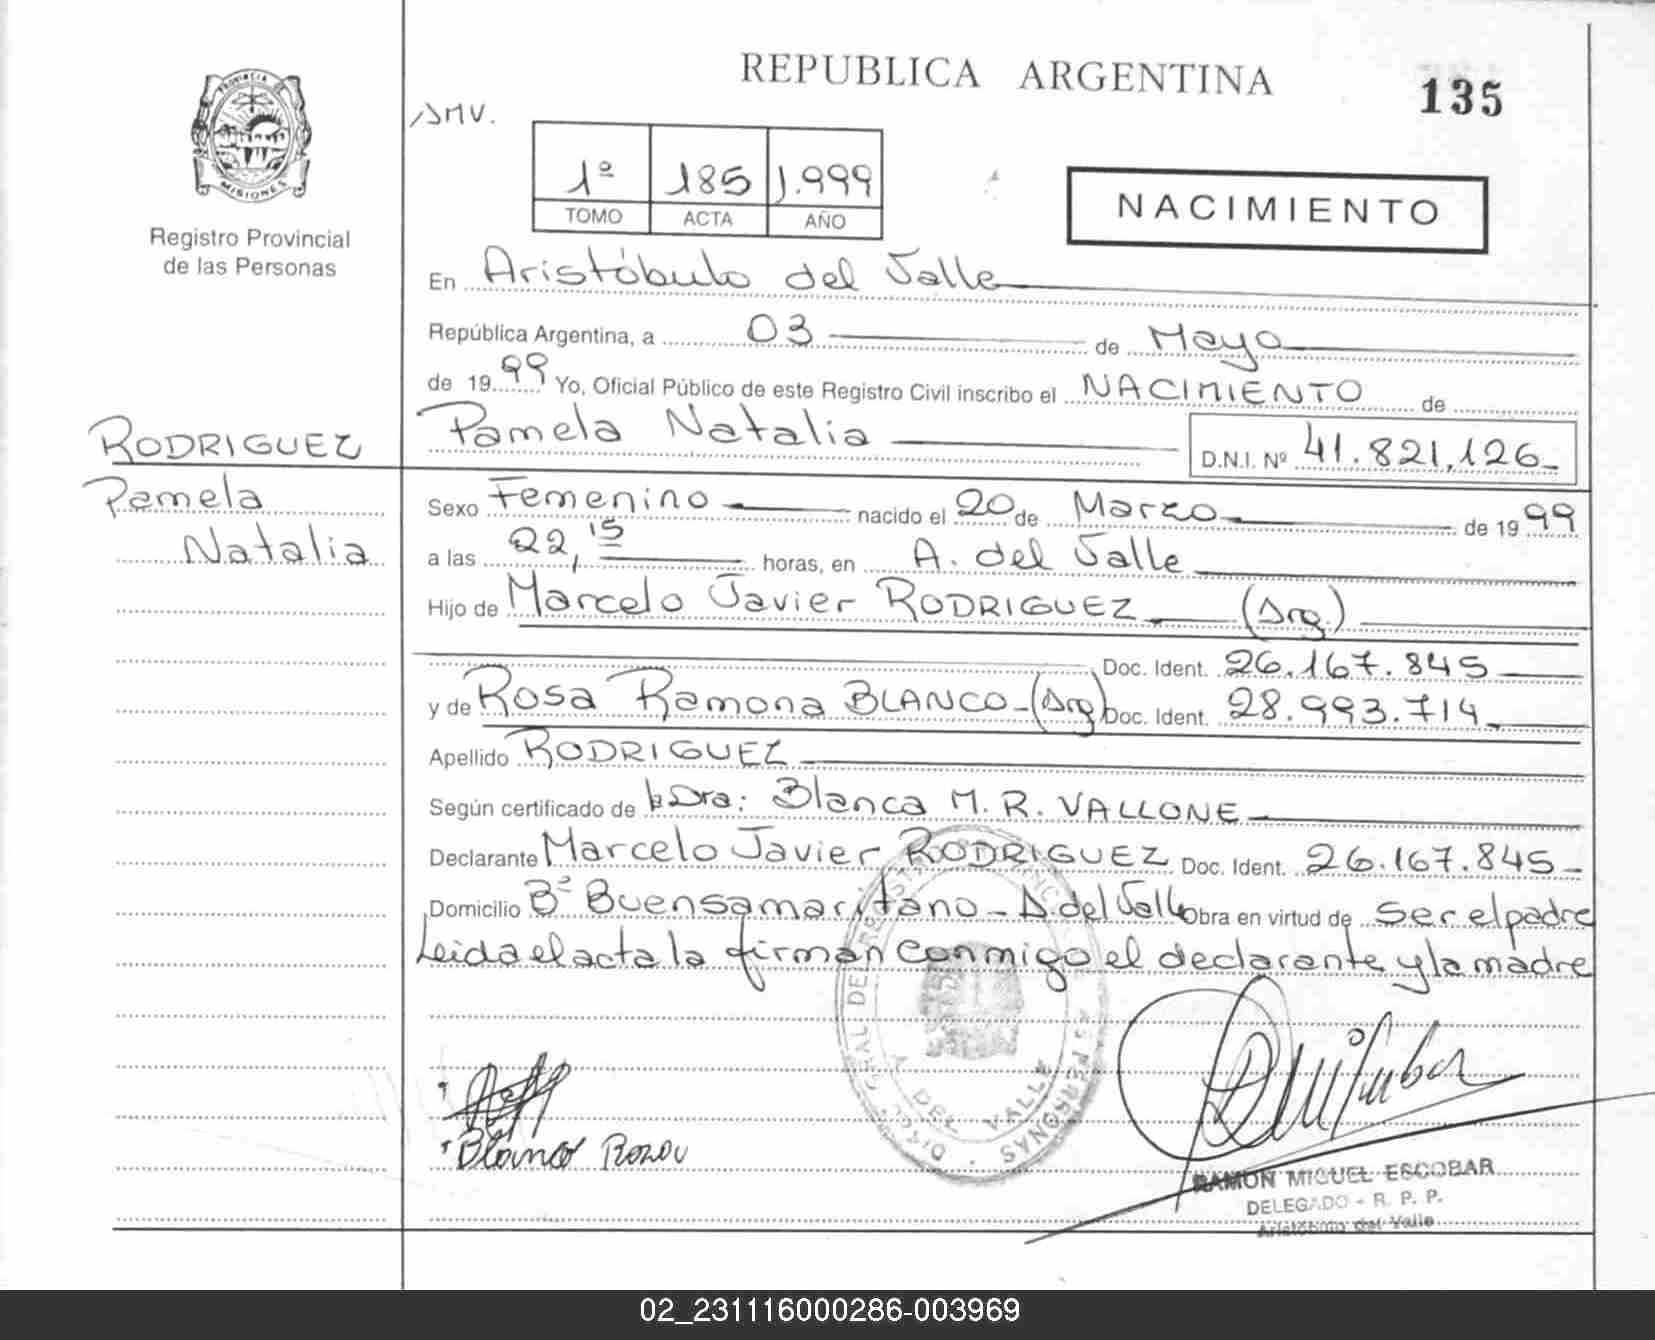 REPUBLICA ARGENTINA
135
PROVINCIA DE
MISIONES
Registro Provincial
de las Personas
1º 185 1.999
TOMO ACTA AÑO
NACIMIENTO
En Aristóbulo del Valle
República Argentina, a 03 de Mayo
de 1999 Yo, Oficial Público de este Registro Civil inscribo el NACIMIENTO de
Pamela Natalia D.N.I. Nº 41.821.126
RODRIGUEZ
Pamela
Natalia
Sexo Femenino nacido el 20 de Marzo de 1999
a las 22,15 horas, en A. del Valle
Hijo de Marcelo Javier RODRIGUEZ (Arg.)
Doc. Ident. 26.167.845
y de Rosa Ramona BLANCO - (Arg) Doc. Ident. 28.993.714
Apellido RODRIGUEZ
Según certificado de la Dra: Blanca M. R. VALLONE
Declarante Marcelo Javier RODRIGUEZ Doc. Ident. 26.167.845
Domicilio Bº Buensamaritano - A. del Valle Obra en virtud de ser el padre
Leida el acta la firman conmigo el declarante y la madre
DEL VALLE
RAMON MIGUEL ESCOBAR
DELEGADO - R. P. P.
Aristóbulo del Valle
02_231116000286-003969